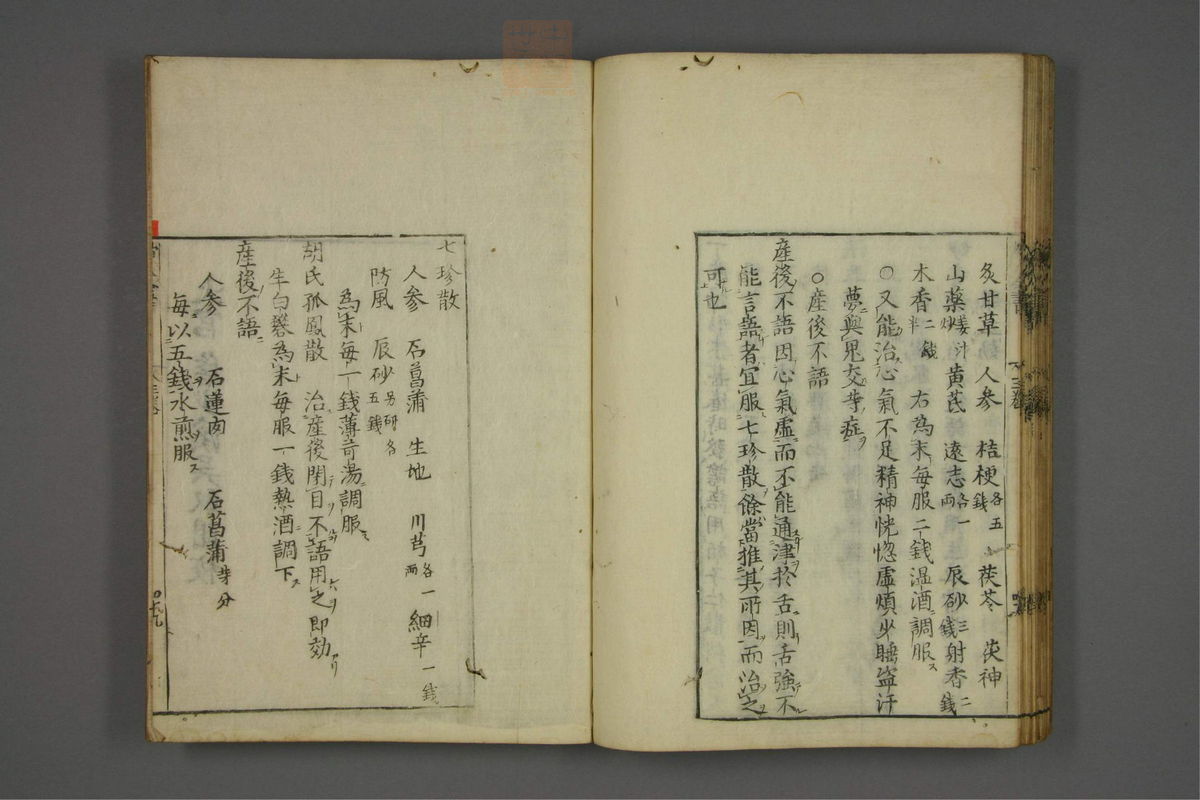 炙甘草 人参 桔梗各五錢 茯苓 茯神
山薬姜汁炒 黄茋 遠志各一兩 辰砂三錢 射香二錢
木香二錢半 右為末每服二錢温酒調服ス
○又能治心氣不足精神恍惚虚煩少睡盗汗
夢與鬼交等症ヲ
○産後不語
産後不語因心氣虚而不能通津於舌則舌強不
能言語者宜服七珍散餘當推其所因而治之
可也
七珍散
人参 石菖蒲 生地 川芎各一兩 細辛一錢
防風 辰砂另研各五錢
為末每一錢薄荷湯調服
胡氏孤鳳散 治産後閉目不語用之即効
生白礬為末每服一錢熱酒調下ス
産後不語
人参 石蓮肉 石菖蒲等分
每以五錢水煎服ス